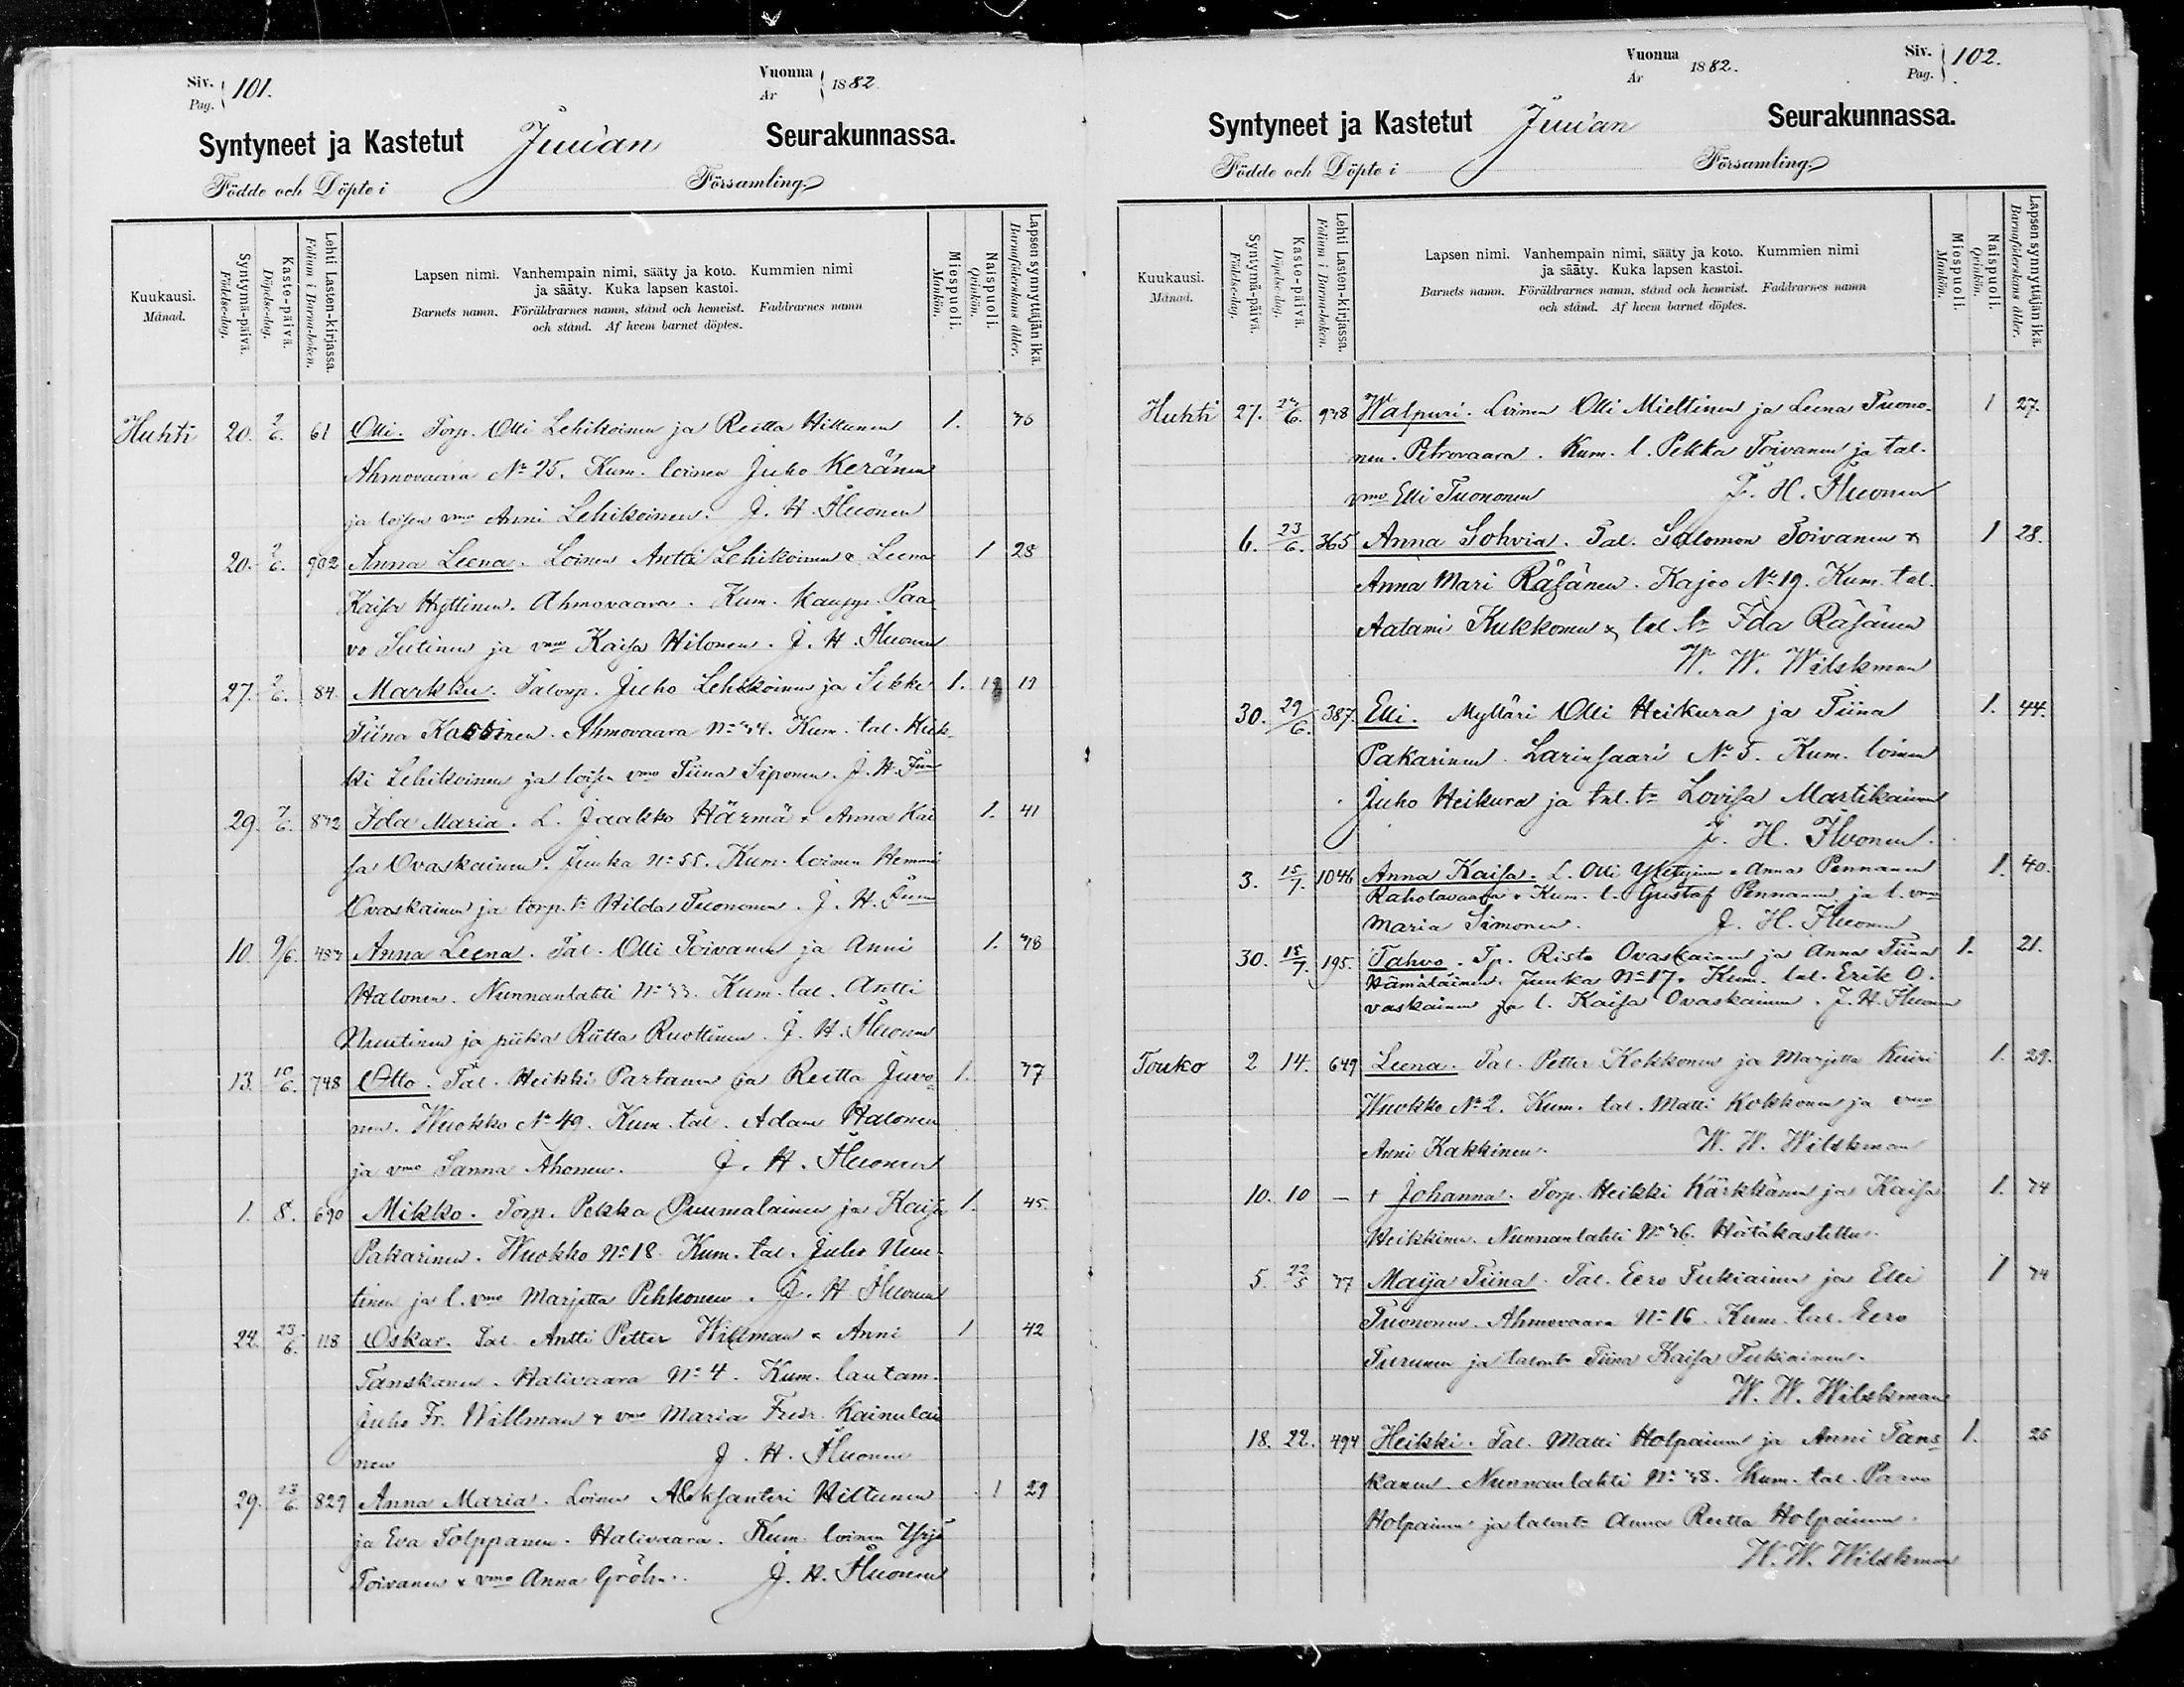 Siv. Pag. 101.
Vuonna År 1882.
Syntyneet ja Kastetut Juuan Seurakunnassa.
Födde och Döpte i Församling.
Kuukausi. Månad.
Syntymä-päivä. Födelse-dag.
Kasto-päivä. Döpelse-dag.
Lehti Lasten-kirjassa. Folium i Barna-boken.
Lapsen nimi. Vanhempain nimi, sääty ja koto. Kummien nimi
ja sääty. Kuka lapsen kastoi.
Barnets namn. Föräldrarnes namn, stånd och hemvist. Faddrarnes namn
och stånd. Af hvem barnet döptes.
Miespuoli. Mankön.
Naispuoli. Qvinkön.
Lapsen synnyttäjän ikä. Barnaföderskans ålder.
Huhti 20. 2/6. 61 Olli. Torp. Olli Lehikoinen ja Reitta Hiltunen 1. 36
Ahmovaara No 25. Kum. loinen Juho Keränen
ja loisen vmo Anni Lehikoinen. J. H. Fluonen
20. 2/6. 902 Anna Leena. Loinen Antti Lehikoinen & Leena 1 28
Kaisa Hyttinen. Ahmovaara. Kum. Kaupp. Paa-
vo Sutinen ja vmo Kaisa Hilonen. J. H. Fluonen
27. 2/6. 84. Markku. Talonp. Juho Lehikoinen ja Sikke 1. 19
Tiina Kassinen. Ahmovaara No 34. Kum. tal. Heik-
ki Lehikoinen ja loisen vmo Tiina Siponen. J. H.
29. 7/6. 832 Ida Maria. L. Jaakko Härmä & Anna Kai 1. 41
sa Ovaskainen. Juuka No 55. Kum. loinen Hemmi
Ovaskainen ja torp. tr Hilda Tuononen. J. H.
10. 9/6. Anna Leena. Tal. Olli Toivanen ja Anni 1. 38
Halonen. Nunnanlahti No 33. Kum. tal. Antti
Nuutinen ja piika Riitta Ruottinen. J. H. Fluonen
13. 10/6. 748 Otto. Tal. Heikki Partanen ja Reitta Juvo- 1. 37
nen. Wuokko No 49. Kum. tal. Adam Halonen
ja vmo Sanna Ahonen. J. H. Fluonen
1. 8. 690 Mikko. Torp. Pekka Puumalainen ja Kaisa 1. 45.
Pakarinen. Wuokko No 18. Kum. tal. Juho Nuu-
tinen ja l. vmo Marjetta Pehkonen. J. H. Fluonen
22. 23/6. 118 Oskar. Tal. Antti Petter Willman & Anni 1 42
Tanskanen. Halivaara No 4. Kum. lautam.
Juho Fr. Willman & vmo Maria Fredr. Kainulai
nen J. H. Fluonen
29. 23/6. 829 Anna Maria. Loinen Aleksanteri Hiltunen 1 29
ja Eva Tolppanen. Halivaara. Kum. loinen Yrjö
Toivanen & vmo Anna Gröhn. J. H. Fluonen
Vuonna År 1882.
Siv. Pag. 102.
Syntyneet ja Kastetut Juuan Seurakunnassa.
Födde och Döpte i Församling.
Kuukausi. Månad.
Syntymä-päivä. Födelse-dag.
Kasto-päivä. Döpelse-dag.
Lehti Lasten-kirjassa. Folium i Barna-boken.
Lapsen nimi. Vanhempain nimi, sääty ja koto. Kummien nimi
ja sääty. Kuka lapsen kastoi.
Barnets namn. Föräldrarnes namn, stånd och hemvist. Faddrarnes namn
och stånd. Af hvem barnet döptes.
Miespuoli. Mankön.
Naispuoli. Qvinkön.
Lapsen synnyttäjän ikä. Barnaföderskans ålder.
Huhti 27. 23/6. 938 Walpuri. Loinen Olli Miettinen ja Leena Tuono- 1 27.
nen. Petrovaara. Kum. l. Pekka Toivanen ja tal.
vmo Elli Tuononen J. H. Fluonen
6. 23/6. 365 Anna Sohvia. Tal. Salomon Toivanen & 1 28.
Anna Mari Räsänen. Kajoo No 19. Kum. tal.
Aatami Kukkonen & tal. tr Ida Räsänen
W. W. Wilskman
30. 29/6. 387. Elli. Mylläri Olli Heikura ja Tiina 1. 44.
Pakarinen. Larinsaari No 5. Kum. loinen
Juho Heikura ja tal. tr Lovisa Martikainen
J. H. Fluonen.
3. 15/7. 1046 Anna Kaisa. L. Olli & Anna Pennanen 1. 40.
Raholavaara. Kum. l. Gustaf Pennanen ja l. vmo
Maria Simonen. J. H. Fluonen
30. 15/7. 195. Tahvo. Tp. Risto Ovaskainen ja Anna Tiina 1. 21.
Hämäläinen. Juuka No 17. Kum. tal. Erik O-
vaskainen ja l. Kaisa Ovaskainen. J. H. Fluonen
Touko 2 14. 649 Leena. Tal. Petter Kokkonen ja Marjetta Kuiri 1. 29.
Wuokko No 2. Kum. tal. Matti Kokkonen ja vmo
Anni Kakkinen. W. W. Wilskman
10. 10 — † Johanna. Torp. Heikki Kärkkänen ja Kaisa 1. 34
Heikkinen. Nunnanlahti No 36. Hätäkastettu.
5. 22/5 37 Maija Tiina. Tal. Eero Tukiainen ja Elli 1 34
Tuononen. Ahmovaara No 16. Kum. tal. Eero
Turunen ja talont. Tiina Kaisa Tukiainen.
W. W. Wilskman
18. 22. 494 Heikki. Tal. Matti Holpainen ja Anni Tans- 1. 26
kanen. Nunnanlahti No 38. Kum. tal. Paavo
Holpainen ja talont. Anna Reetta Holpainen.
W. W. Wilskman